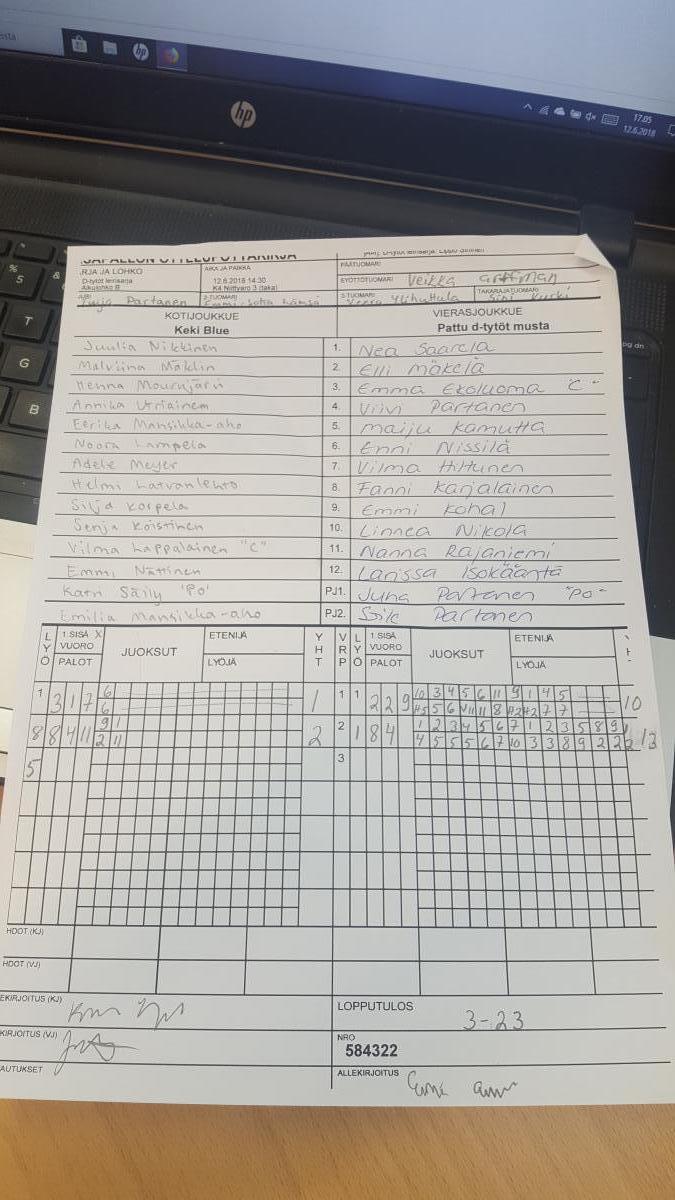 hp
hp
17.05
12.6.2018
% 5
&
T
G
B
pg dn
RJA JA LOHKO
D-tytöt leirisarja
Alkulohko B
AIKA JA PAIKKA
12.6.2018 14:30
K4 Niittyaro 3 (taka)
PÄÄTUOMARI
SYÖTTÖTUOMARI Veikka arttman
2-TUOMARI
3-TUOMARI
TAKARAJATUOMARI
Partanen
KOTIJOUKKUE
Keki Blue
VIERASJOUKKUE
Pattu d-tytöt musta
Juulia Nikkinen 1. Nea Saarela
Malviina Mäklin 2. Elli Mäkelä
Henna Mourujärvi 3. Emma Ekoluoma "C"
Annika Utriainen 4. Viivi Partanen
Eerika Mansikka-aho 5. maiju Kamutta
Noora Lampela 6. Enni Nissilä
Adele Meyer 7. Vilma Hiltunen
Helmi Latvanlehto 8. Fanni Karjalainen
Silja Korpela 9. Emmi Kohal
Senja Koistinen 10. Linnea Nikola
Vilma Lappalainen "C" 11. Nanna Rajaniemi
Emmi Nättinen 12. Larissa Isokääntä
Katri Säily "PO" PJ1. Juha Partanen "PO"
Emilia Mansikka-aho PJ2. Partanen
LYÖ 1.SISÄ X VUORO PALOT JUOKSUT ETENIJÄ LYÖJÄ YHT VRP LYÖ 1.SISÄ VUORO PALOT JUOKSUT ETENIJÄ LYÖJÄ
1 3 1 7 6 1 1 1 2 2 9 10 3 4 5 6 11 9 1 4 5 10
6
8 8 4 11 9 1 2 2 1 8 4 1 2 3 4 5 6 7 1 2 3 5 8 9 13
2 11 4 5 5 5 6 7 10 3 3 8 9 2 2
5 3
HDOT (KJ)
HDOT (VJ)
EKIRJOITUS (KJ)
LOPPUTULOS 3-23
KIRJOITUS (VJ)
NRO
584322
AUTUKSET
ALLEKIRJOITUS